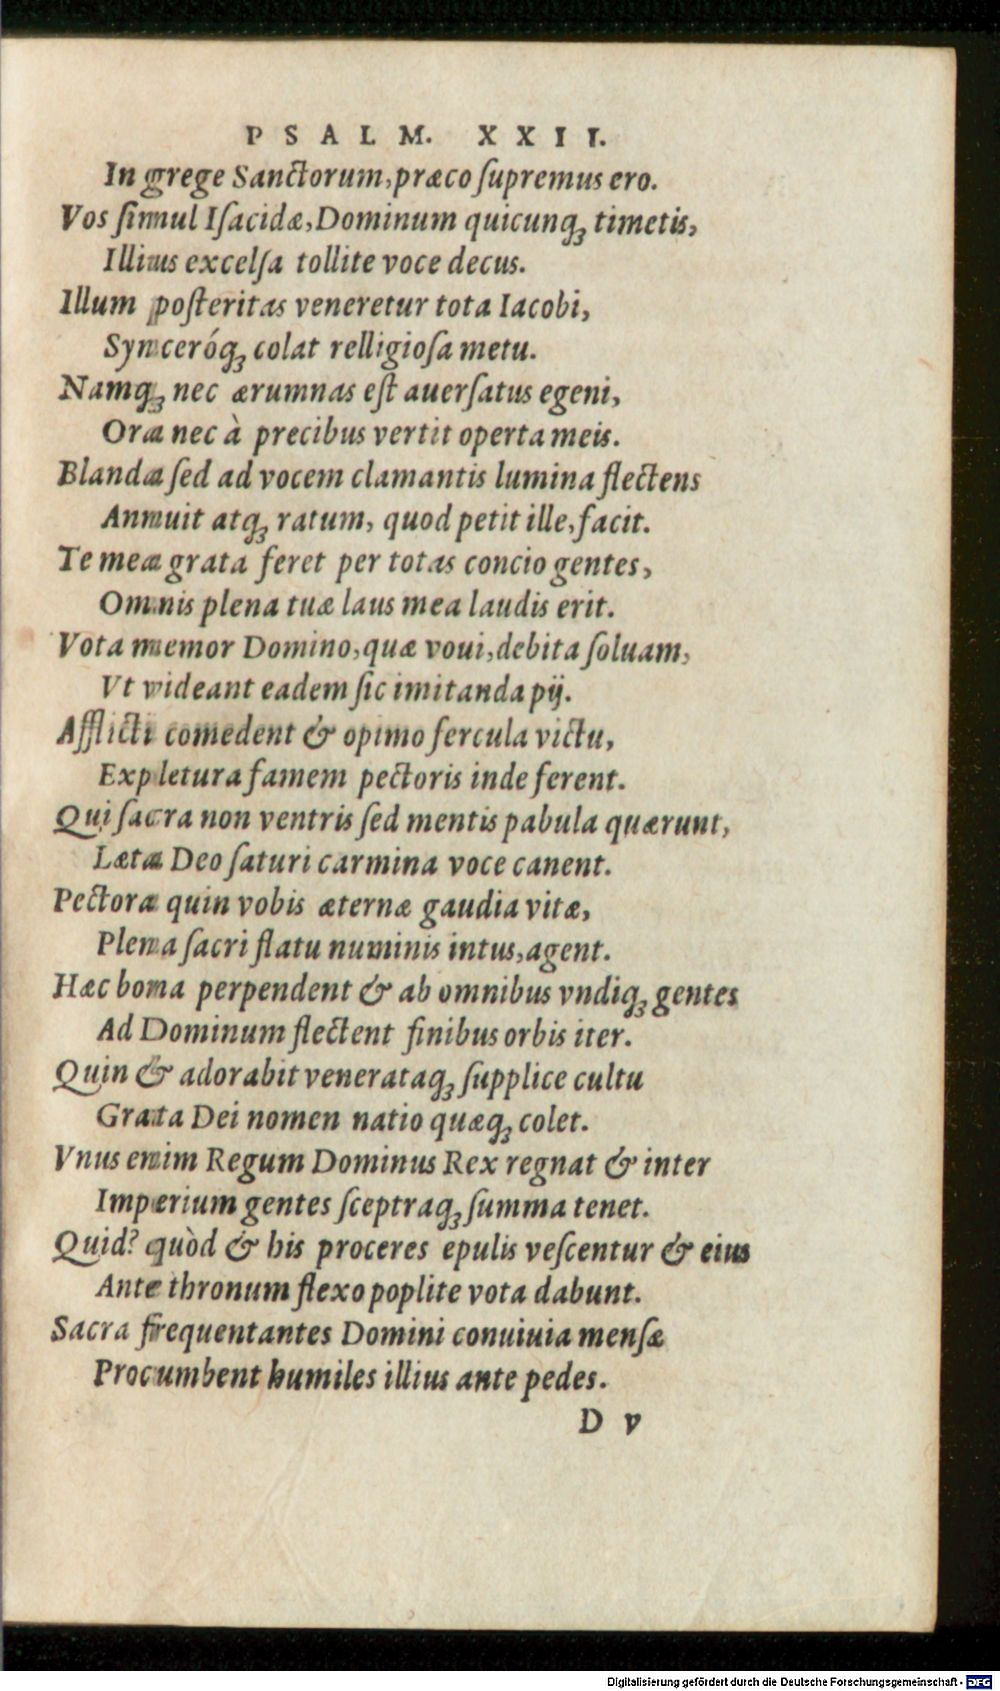 PSALM. XXII.
In grege Sanctorum, præco ſupremus ero.
Vos ſimul Iſacidæ, Dominum quicunq; timetis,
Illius excelſa tollite voce decus.
Illum poſteritas veneretur tota Iacobi,
Synceróq; colat relligioſa metu.
Namq; nec ærumnas eſt auerſatus egeni,
Ora nec à precibus vertit operta meis.
Blanda ſed ad vocem clamantis lumina flectens
Annuit atq; ratum, quod petit ille, facit.
Te mea grata feret per totas concio gentes,
Omnis plena tuæ laus mea laudis erit.
Vota memor Domino, quæ voui, debita ſoluam,
Vt videant eadem ſic imitanda pij.
Afflicti comedent & opimo fercula victu,
Expletura famem pectoris inde ferent.
Qui ſacra non ventris ſed mentis pabula quærunt,
Læta Deo ſaturi carmina voce canent.
Pectora quin vobis æternæ gaudia vitæ,
Plena ſacri flatu numinis intus, agent.
Hæc bona perpendent & ab omnibus vndiq; gentes
Ad Dominum flectent finibus orbis iter.
Quin & adorabit venerataq; ſupplice cultu
Grata Dei nomen natio quæq; colet.
Vnus enim Regum Dominus Rex regnat & inter
Imperium gentes ſceptraq; ſumma tenet.
Quid? quòd & his proceres epulis veſcentur & eius
Ante thronum flexo poplite vota dabunt.
Sacra frequentantes Domini conuiuia menſæ
Procumbent humiles illius ante pedes.
D v
Digitalisierung gefördert durch die Deutsche Forschungsgemeinschaft - DFG